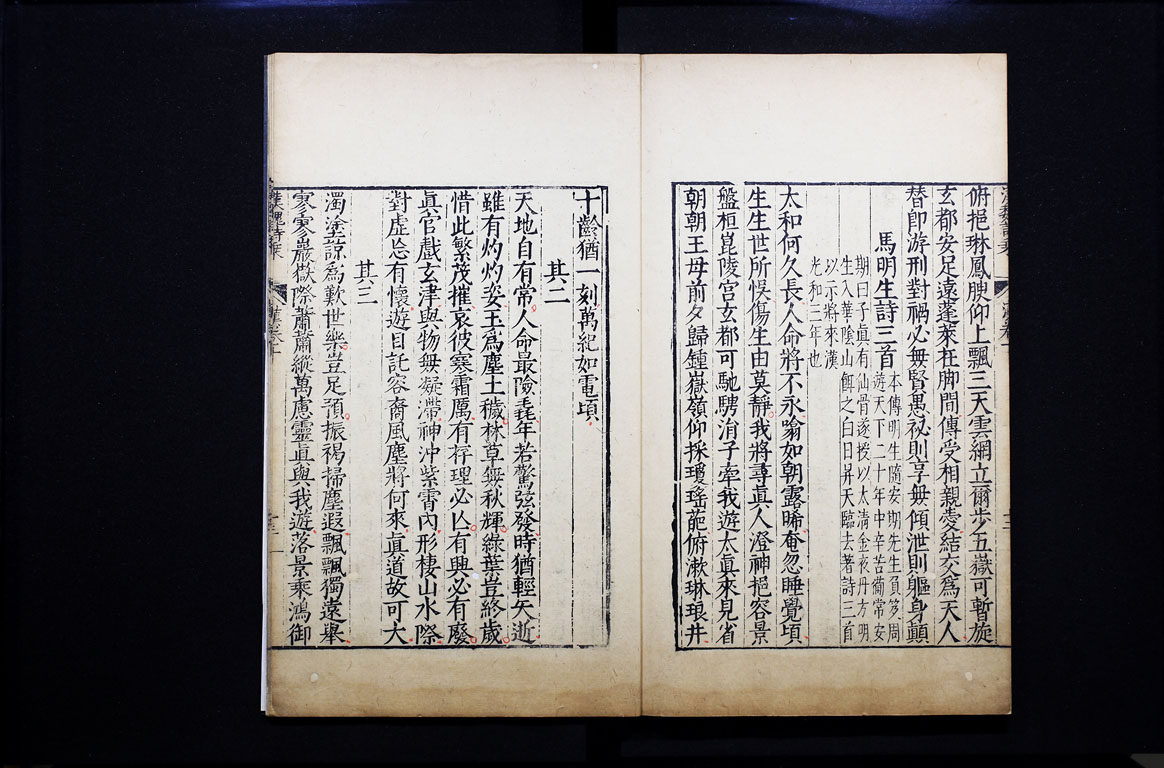 俯挹琳鳳腴仰上飄三天雲綱立爾步五嶽可暫旋
玄都安足遠蓬萊在脚間傳受相親愛結交爲天人
替卽游刑對禍必無賢愚祕則享無傾泄則軀身顛
馬明生詩三首
本傳明生隨安期先生負笈周
遊天下二十年中辛苦備常安
期曰子眞有仙骨遂授以太淸金液丹方明
生入華陰山餌之白日昇天臨去著詩三首
以示將來漢
光和三年也
太和何久長人命將不永噏如朝露晞奄忽睡覺頃
生生世所悮傷生由莫靜我將尋眞人澄神挹容景
盤桓崑陵宮玄都可馳騁涓子牽我遊太眞來見省
朝朝王母前夕歸鍾嶽嶺仰採瓊瑤葩俯漱琳琅井
十齡猶一刻萬紀如電頃
其二
天地自有常人命最險毳年若驚弦發時猶輕矢逝
雖有灼灼姿玉爲塵土穢林草無秋輝綠葉豈終歲
惜此繁茂摧哀彼寒霜厲有存理必亾有興必有廢
眞官戲玄津與物無凝滯神沖紫霄內形棲山水際
對虛忩有懷遊目託容裔風塵將何來眞道故可大
其三
濁塗諒爲歎世樂豈足預振褐掃塵遐飄飄獨遠舉
寥寥巖嶽際蕭蕭縱萬慮靈眞與我遊落景乘鴻御
漢魏詩乘